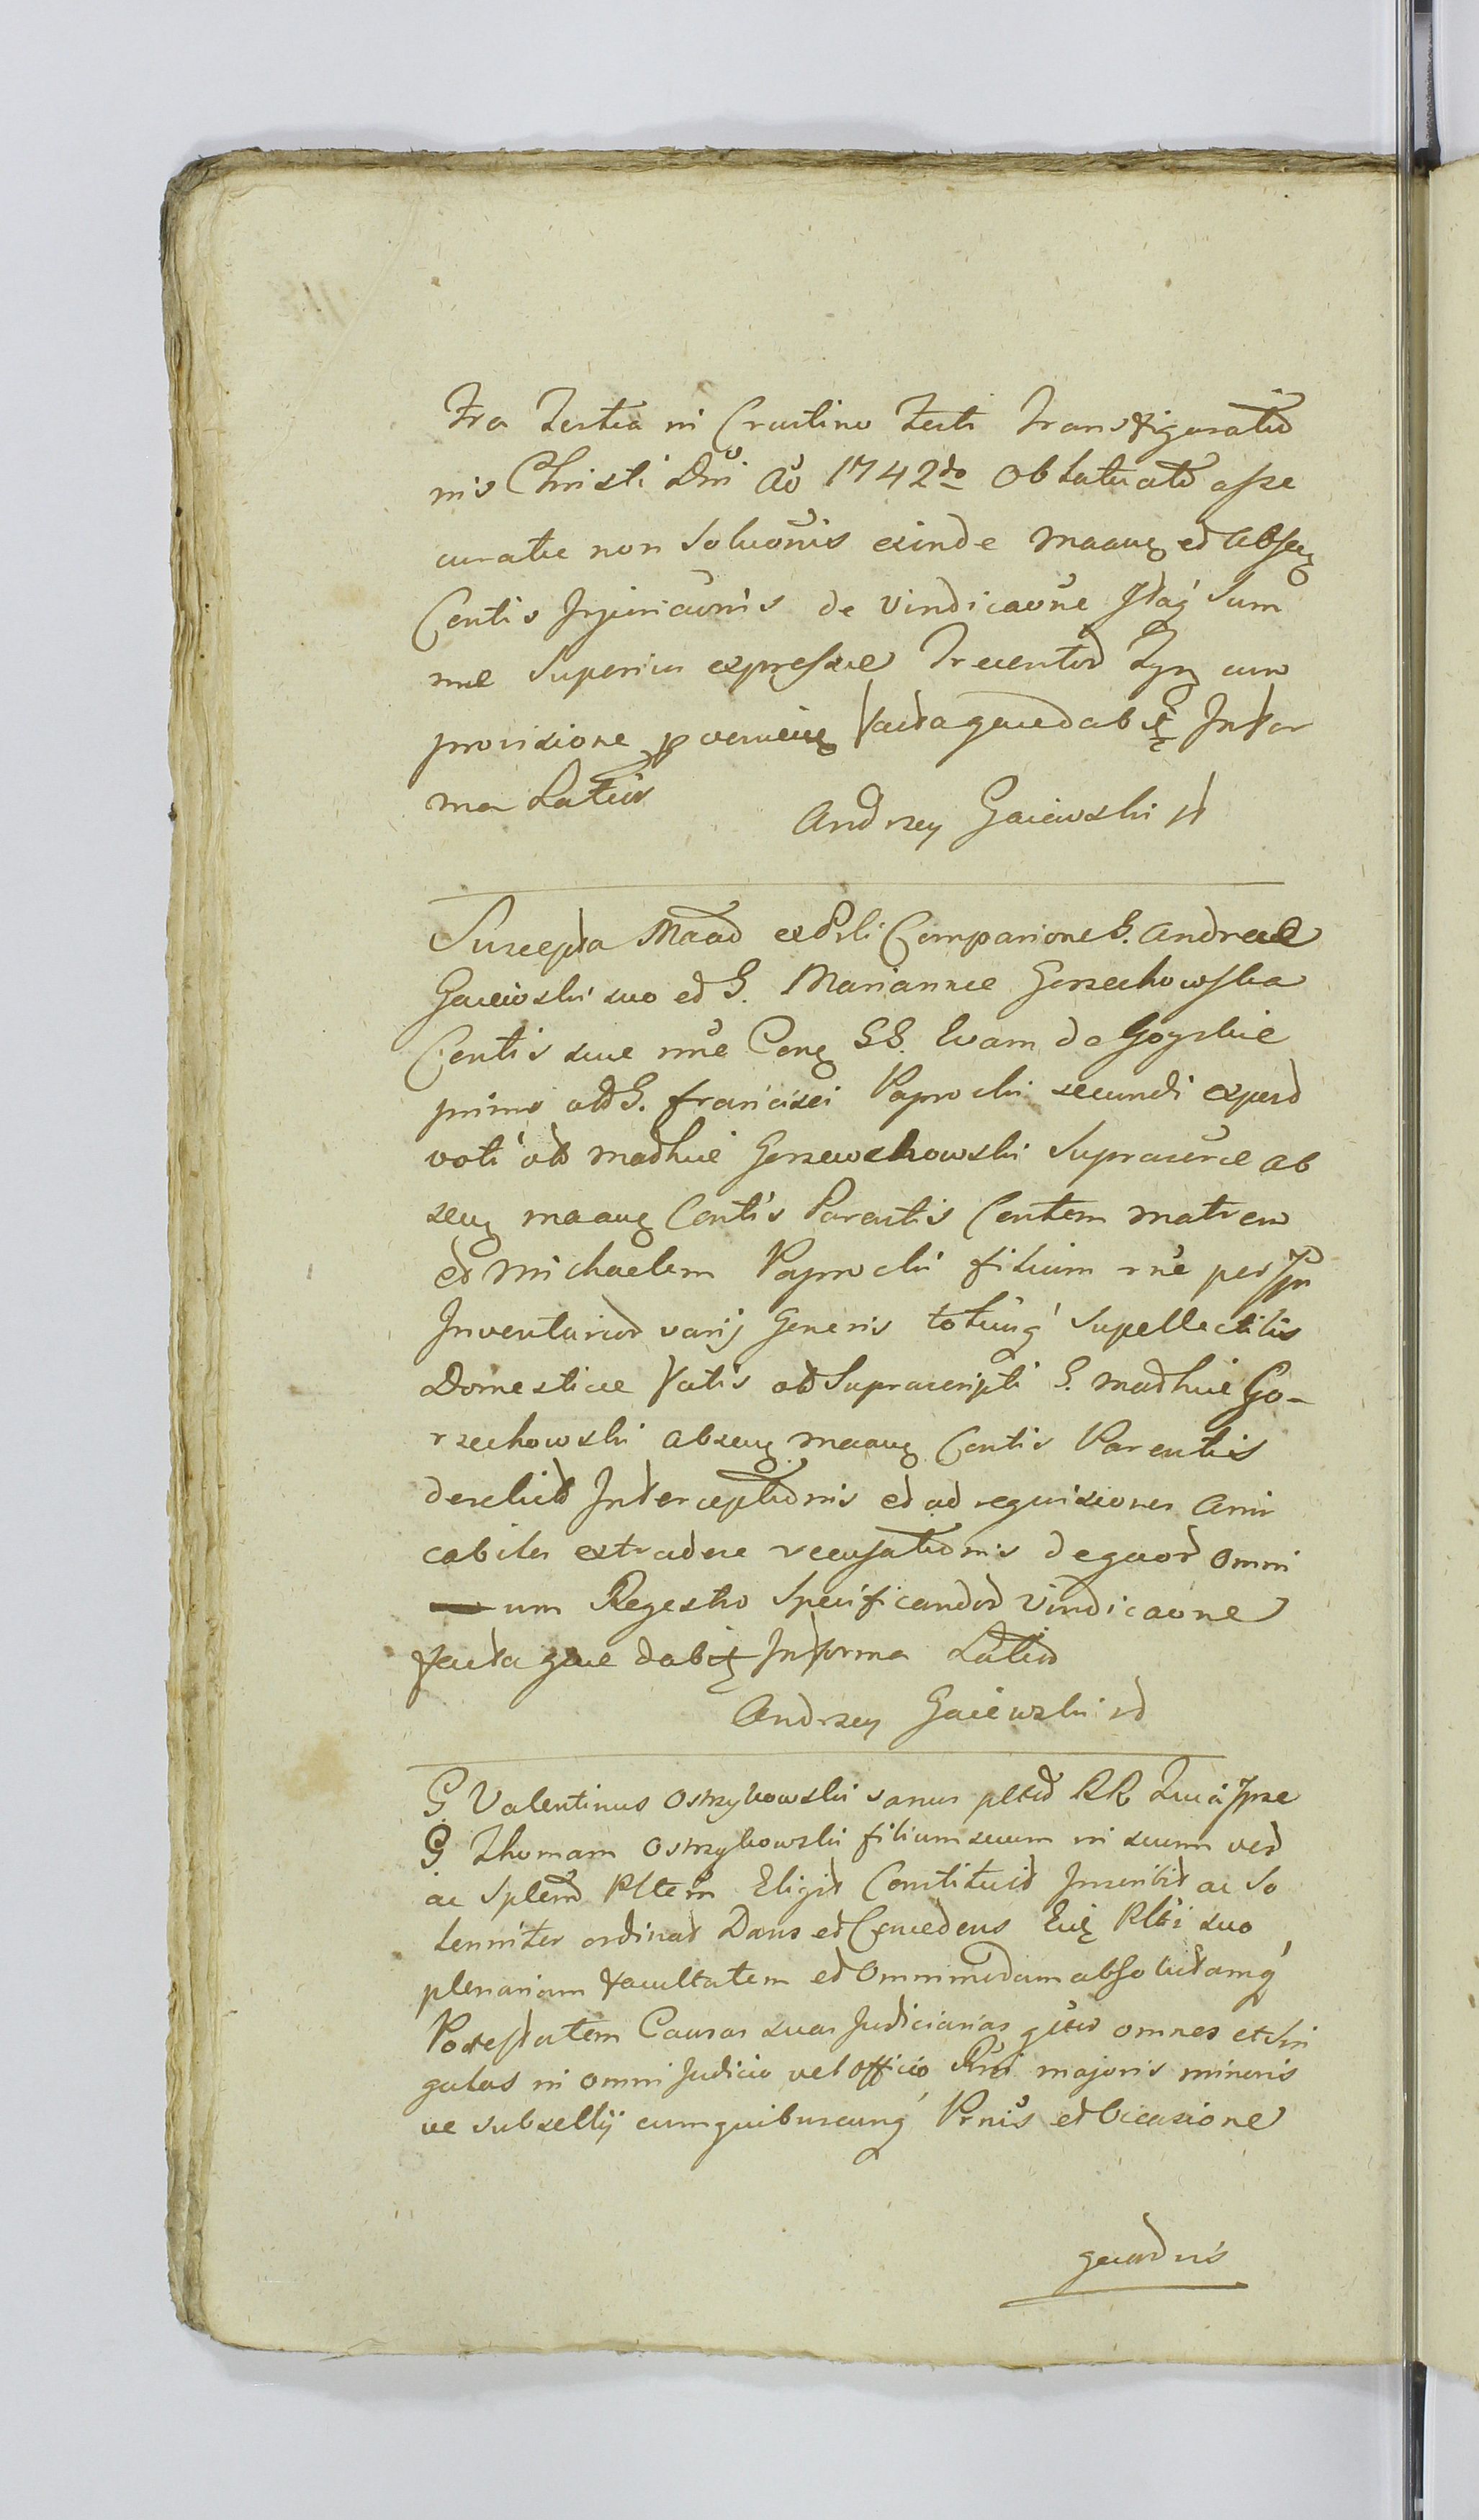 Fra Tertia in Crastino Festi Transfiguratio
nis Christi Dni Ao 1742do Oblatuato asse
curatae non Soluonis exinde maaug et Abseg
Contis Injuriaonis de vindicaone Itaq Sum
mae Superius expressae Trecentor cum
provisione pvenieng facta quae dabit Infor
ma Latior
Andrzey Gaiewski
Suscepta Maad Compariones G. Andreae
Gaiewski suo et G. Mariannae Gorzechowska
Contis suae nne Cong GG. Evam de Gogskie
primo olo G. Francisci Paprocki secundi expeto
voti olo Mathiae Gorzewchowski Supraserae ab
seng maaug Contis Parentis Contem matrem
et Michaelem Paprocki filium rne per
Inventarior varij Generis totiusq Supellectilis
Domesticae Fatis olo Suprascripti G. Mathiae Go-
rzechowski abseng maaug Contis Parentis
derelicto Interceptionis et ad requisiones Ami
cabiles extradere recusationis de quor omni
um Regestro Specificandor Vindicaone
facta quae dabit Informa Latior
Andrzey Gaiewski
G. Valentinus Ostrzykowski sanus RR
G Thomam Ostrzykowski filium suum in suum ver
ac Splem Pltem Eligit Constituit Inscribit ac So
lenniter ordinat Dans et Concedens Eidę Plti suo
plenariam facultatem et Omnimodam absolutamq
Potestatem Causas suas Judiciarias omnes et Sin
gulas in omni Judicio vel Officio Rni majoris minoris
ve subsellij cum quibuscunq Prnis et Occasione
quorvis